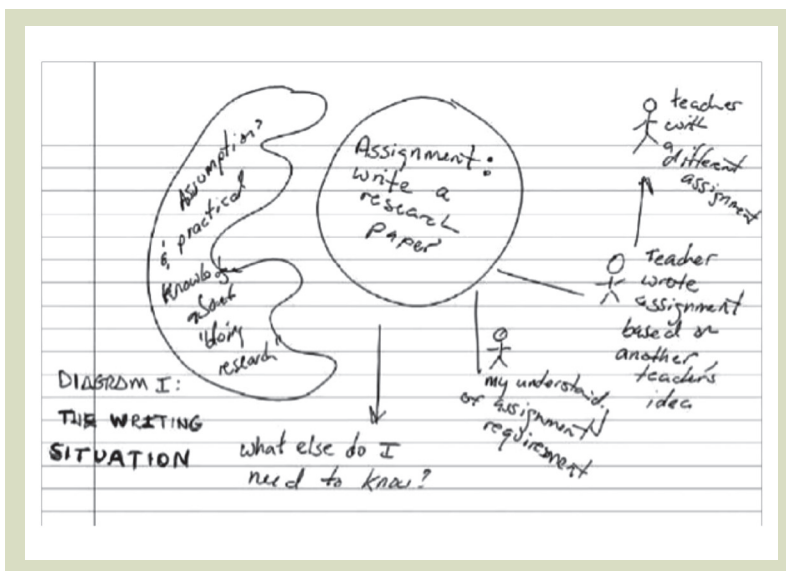 Assumption?
& practical
knowledge
about
"doing
research"
Assignment:
write a
research
paper
teacher
with
a
different
assignment
Teacher
wrote
assignment
based on
another
teacher's
idea
my understand.
of assignment
requirement
what else do I
need to know?
DIAGRAM I:
THE WRITING
SITUATION